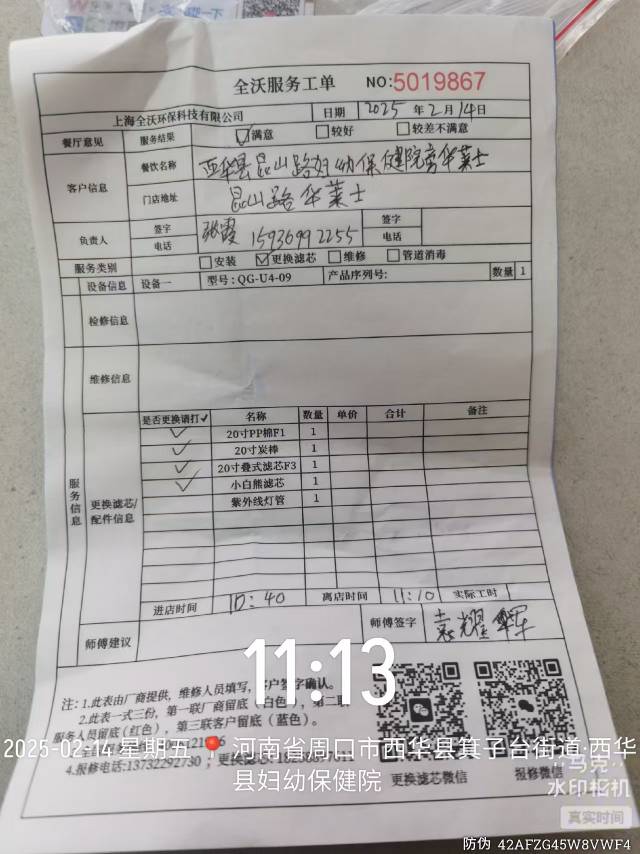 全沃服务工单 NO:5019867
上海全沃环保科技有限公司 日期 2025 年 2 月 14 日
餐厅意见 服务结果 ☑满意 □较好 □较差不满意
客户信息 餐饮名称 西华县昆山路妇幼保健院旁华莱士
门店地址 昆山路华莱士
负责人 签字 张霞 签字
电话 15936992255 电话
服务类别 □安装 ☑更换滤芯 □维修 □管道消毒
设备信息 设备一 型号:QG-U4-09 产品序列号: 数量 1
检修信息
维修信息
服务信息
更换滤芯/配件信息
是否更换请打✓ 名称 数量 单价 合计 备注
✓ 20寸PP棉F1 1
✓ 20寸炭棒 1
✓ 20寸叠式滤芯F3 1
✓ 小白熊滤芯 1
紫外线灯管 1
进店时间 10:40 离店时间 11:10 实际工时
师傅建议 师傅签字 袁耀军
11:13
注:1.此表由厂商提供,维修人员填写,客户签字确认。
2.此表一式三份,第一联厂商留底(白色),第二联
服务人员留底(红色),第三联客户留底(蓝色)。
4.报修电话:13732292730 ;更换
更换滤芯微信 报修微信
2025-02-14 星期五 河南省周口市西华县箕子台街道·西华县妇幼保健院
马克
水印相机
真实时间
防伪 42AFZG45W8VWF4